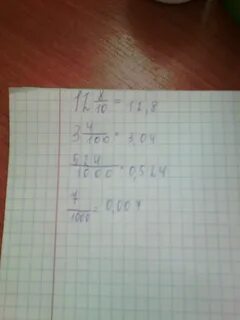 12 8/10 = 12,8
3 4/100 = 3,04
524/1000 = 0,524
7/1000 = 0,007